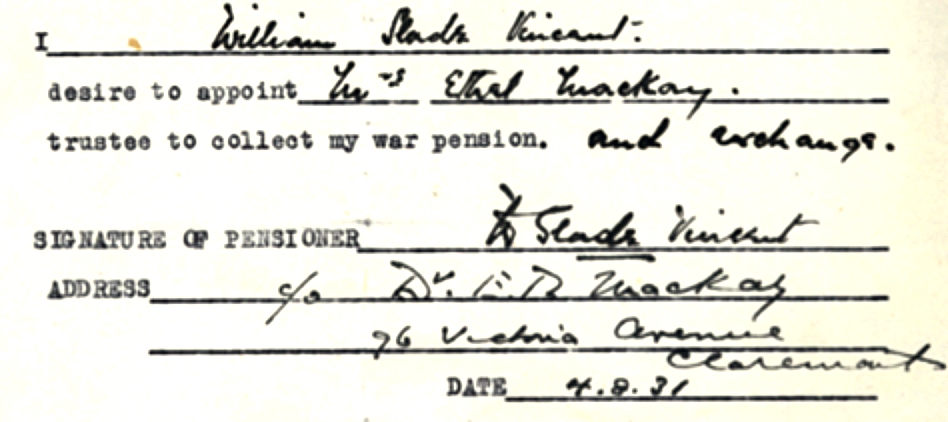 I William Slade Vincent.
desire to appoint Mrs Ethel Mackay.
trustee to collect my war pension. and exchange.
SIGNATURE OF PENSIONER W Slade Vincent
ADDRESS c/o Dr. E. D. Mackay
96 Victoria Avenue
Claremont
DATE 4.8.31